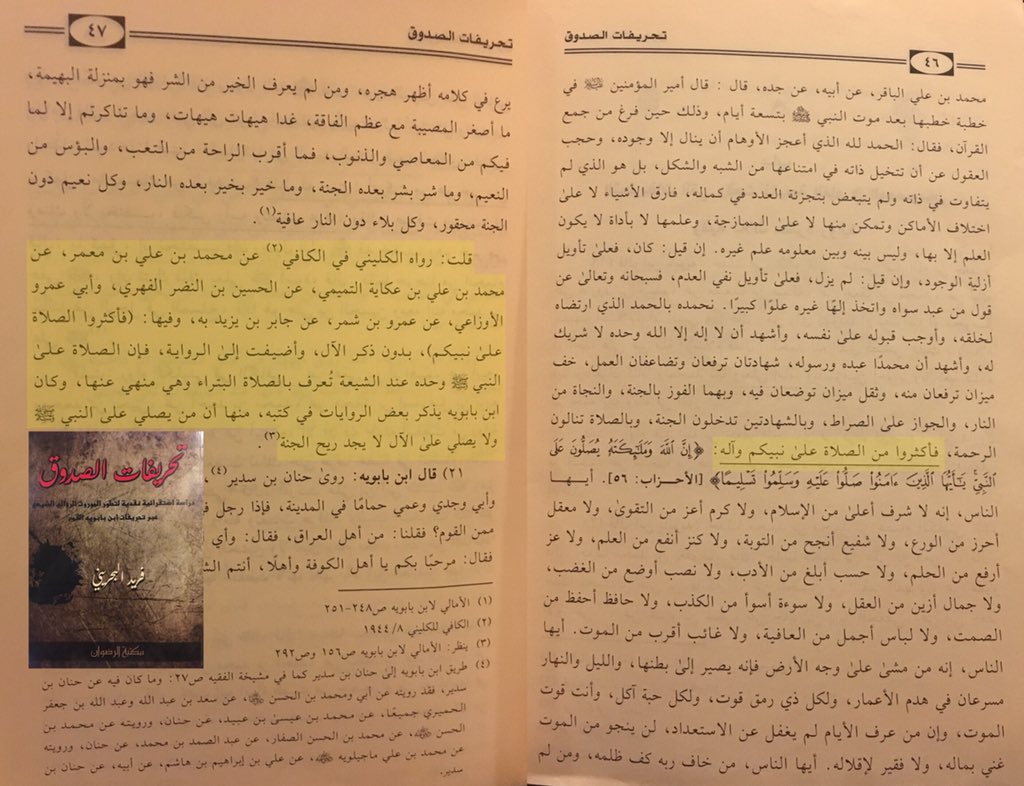 تحريفات الصدوق
٤٦
محمد بن علي الباقر، عن أبيه، عن جده، قال: قال أمير المؤمنين ﷺ في
خطبة خطبها بعد موت النبي ﷺ بتسعة أيام، وذلك حين فرغ من جمع
القرآن، فقال: الحمد لله الذي أعجز الأوهام أن ينال إلا وجوده، وحجب
العقول عن أن تتخيل ذاته في امتناعها من الشبه والشكل، بل هو الذي لم
يتفاوت في ذاته ولم يتبعض بتجزئة العدد في كماله، فارق الأشياء لا على
اختلاف الأماكن وتمكن منها لا على الممازجة، وعلمها لا بأداة لا يكون
العلم إلا بها، وليس بينه وبين معلومه علم غيره. إن قيل: كان، فعلى تأويل
أزلية الوجود، وإن قيل: لم يزل، فعلى تأويل نفي العدم، فسبحانه وتعالى عن
قول من عبد سواه واتخذ إلهًا غيره علوًا كبيرًا. نحمده بالحمد الذي ارتضاه
لخلقه، وأوجب قبوله على نفسه، وأشهد أن لا إله إلا الله وحده لا شريك
له، وأشهد أن محمدًا عبده ورسوله، شهادتان ترفعان وتضاعفان العمل، خف
ميزان ترفعان منه، وثقل ميزان توضعان فيه، وبهما الفوز بالجنة، والنجاة من
النار، والجواز على الصراط، وبالشهادتين تدخلون الجنة، وبالصلاة تنالون
الرحمة، فأكثروا من الصلاة على نبيكم وآله: ﴿إِنَّ اللَّهَ وَمَلَٰٓئِكَتَهُۥ يُصَلُّونَ عَلَى
النَّبِيِّ يَٰٓأَيُّهَا الَّذِينَ ءَامَنُوا۟ صَلُّوا۟ عَلَيْهِ وَسَلِّمُوا۟ تَسْلِيمًا﴾ [الأحزاب: ٥٦]. أيها
الناس، إنه لا شرف أعلى من الإسلام، ولا كرم أعز من التقوى، ولا معقل
أحرز من الورع، ولا شفيع أنجح من التوبة، ولا كنز أنفع من العلم، ولا عز
أرفع من الحلم، ولا حسب أبلغ من الأدب، ولا نصب أوضع من الغضب،
ولا جمال أزين من العقل، ولا سوءة أسوأ من الكذب، ولا حافظ أحفظ من
الصمت، ولا لباس أجمل من العافية، ولا غائب أقرب من الموت. أيها
الناس، إنه من مشى على وجه الأرض فإنه يصير إلى بطنها، والليل والنهار
مسرعان في هدم الأعمار، ولكل ذي رمق قوت، ولكل حبة آكل، وأنت قوت
الموت، وإن من عرف الأيام لم يغفل عن الاستعداد، لن ينجو من الموت
غني بماله، ولا فقير لإقلاله. أيها الناس، من خاف ربه كف ظلمه، ومن لم
تحريفات الصدوق
٤٧
يرع في كلامه أظهر هجره، ومن لم يعرف الخير من الشر فهو بمنزلة البهيمة،
ما أصغر المصيبة مع عظم الفاقة، غدا هيهات هيهات، وما تناكرتم إلا لما
فيكم من المعاصي والذنوب، فما أقرب الراحة من التعب، والبؤس من
النعيم، وما شر بشر بعده الجنة، وما خير بخير بعده النار، وكل نعيم دون
الجنة محقور، وكل بلاء دون النار عافية(١).
قلت: رواه الكليني في الكافي(٢) عن محمد بن علي بن معمر، عن
محمد بن علي بن عكاية التميمي، عن الحسين بن النضر الفهري، وأبي عمرو
الأوزاعي، عن عمرو بن شمر، عن جابر بن يزيد به، وفيها: (فأكثروا الصلاة
على نبيكم)، بدون ذكر الآل، وأضيفت إلى الرواية، فإن الصلاة على
النبي ﷺ وحده عند الشيعة تُعرف بالصلاة البتراء وهي منهي عنها، وكان
ابن بابويه يذكر بعض الروايات في كتبه، منها أن من يصلي على النبي ﷺ
ولا يصلي على الآل لا يجد ريح الجنة(٣).
٢١) قال ابن بابويه: روى حنان بن سدير(٤)
وأبي وجدي وعمي حمامًا في المدينة، فإذا رجل ف
ممن القوم؟ فقلنا: من أهل العراق، فقال: وأي
فقال: مرحبًا بكم يا أهل الكوفة وأهلًا، أنتم الش
(١) الأمالي لابن بابويه ص٢٤٨-٢٥١
(٢) الكافي للكليني ١٩٤٤/٨
(٣) ينظر: الأمالي لابن بابويه ص١٥٦ وص٢٩٢
(٤) طريق ابن بابويه إلى حنان بن سدير كما في مشيخة الفقيه ص٢٧: وما كان فيه عن حنان بن
سدير، فقد رويته عن أبي ومحمد بن الحسن، عن سعد بن عبد الله وعبد الله بن جعفر
الحميري جميعًا، عن محمد بن عيسى بن عبيد، عن حنان، ورويته عن محمد بن
الحسن، عن محمد بن الحسن الصفار، عن عبد الصمد بن محمد، عن حنان، ورويته
عن محمد بن علي ماجيلويه، عن علي بن إبراهيم بن هاشم، عن أبيه، عن حنان بن
سدير.
تحريفات الصدوق
دراسة استقرائية نقدية لتطور الموروث الروائي الشيعي
عبر تحريفات ابن بابويه القمي
فريد البحريني
مكتبة الرضوان